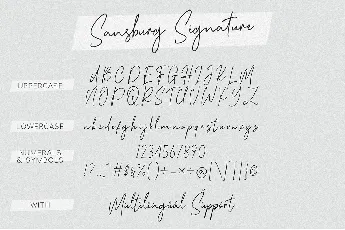 Sansburg Signature
UPPERCASE
ABCDEFGHIJKLM
NOPQRSTUVWXYZ
LOWERCASE
abcdefghijklmnopqrstuvwxyz
NUMERALS
& SYMBOLS
1234567890
WITH
Multilingual Support